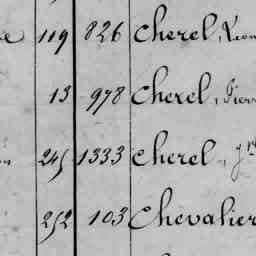 119 826 Cherel,
13 978 Cherel,
245 1333 Cherel,
252 103 Chevalier